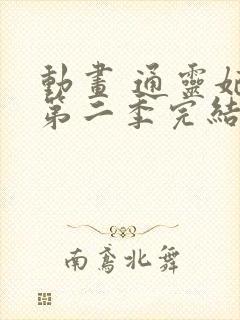 動畫 通靈妃
第二季完結
南鳶北舞